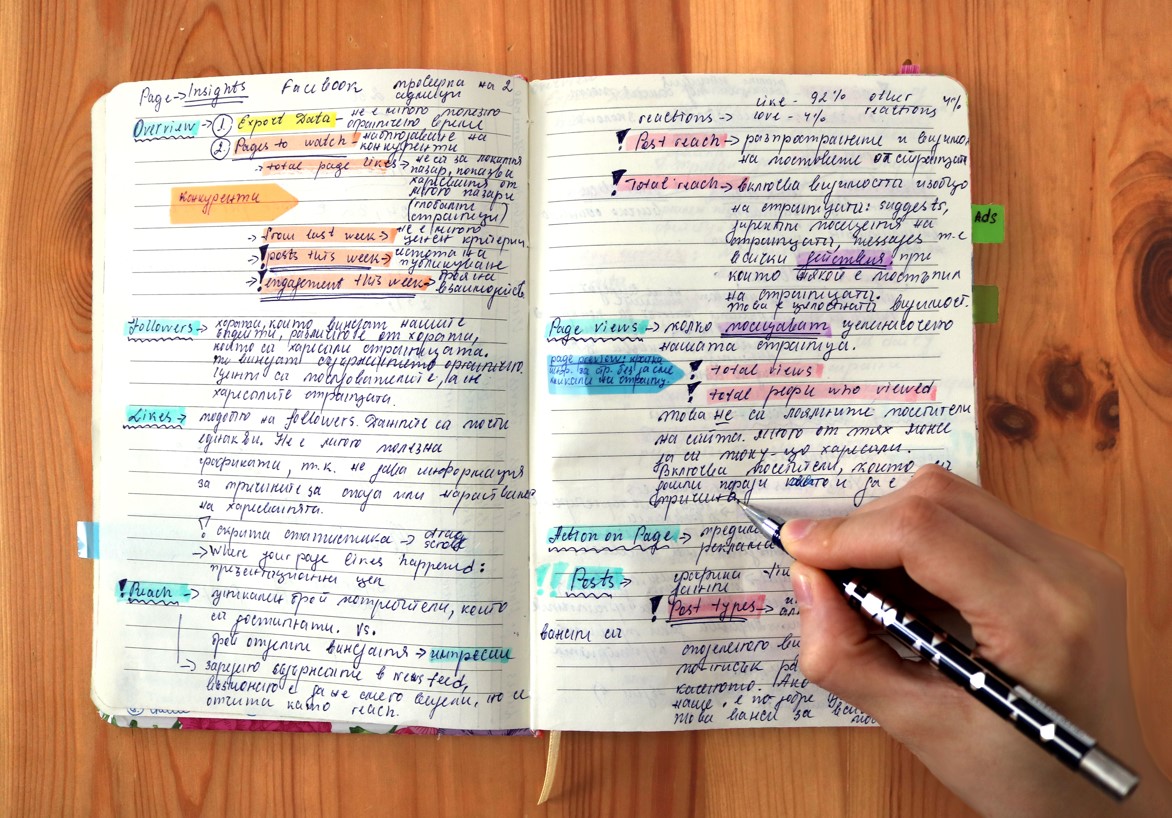 Page → Insights Facebook проверка на 2
Overview → ① Export Data – не е много полезно
② Pages to watch – наблюдаване на
конкуренти
→ total page likes → не са за локалния
пазар, показва
харесвания от
много пазари
(глобални
страници)
конкуренти
→ from last week → не е много
ценен критерий
→ posts this week → честота на
публикуване
→ engagement this week → броя на
взаимодейств.
Followers → хората, които виждат нашите
ъпдейти, различете от хората,
които са харесали страницата.
те виждат съдържанието органично.
Ценни са последователите, а не
харесалите страницата.
Likes → подобно на followers. Данните са почти
еднакви. Не е много полезна
графиката, т.к. не дава информация
за причините за спада или нарастване
на харесванията.
! скрита статистика → drag
scroll
→ Where your page likes happened:
презентационни цел
! Reach → уникален брой потребители, които
са достигнати. vs.
брой отделни виждания → импресии
→ заредено съдържание в newsfeed,
възможно е да не сме го видели, но се
отчита като reach.
like - 92% other 4%
reactions → love - 4% reactions
! Post reach → разпространение и видимо
на постовете от страницата
! Total reach → включва видимостта изобщо
на страницата: suggests,
директни посещения на
страницата, messages т.е
всички действия, при
които някой е постъпил
на страницата.
това е цялостната видимост.
Ads
Page views → колко посещават целенасочено
нашата страница.
page preview: кратка
инф. за стр. без да сме
кликали на страниц.
! total views
! total people who viewed
това не са лоялните посетители
на сайта. Много от тях може
да са току-що харесали.
Включва посетители, които са
дошли поради каквато и да е
причина
Action on Page →
реклама
!! Posts → графика
данни
! Post types →
вашти са
споделено